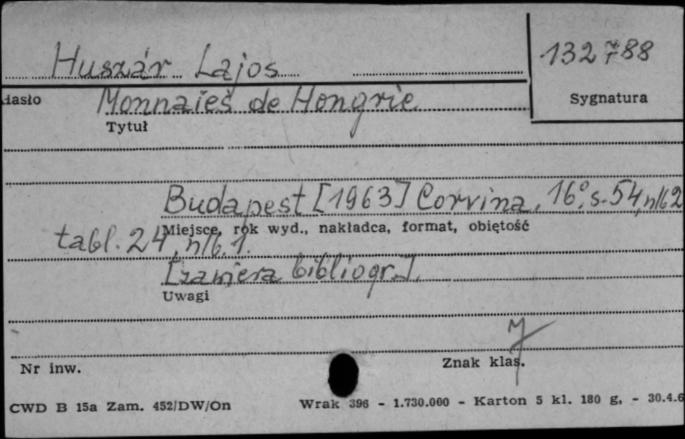 Huszár Lajos
132788
Hasło
Sygnatura
Monnaies de Hongrie
Tytuł
Budapest [1963] Corvina, 16°, s. 54, nlb 2
Miejsce, rok wyd., nakładca, format, objętość
tabl. 24, nlb. 1.
[zawiera bibliogr.].
Uwagi
7
Nr inw.
Znak klas.
CWD B 15a Zam. 452/DW/On
Wrak 396 - 1.730.000 - Karton 5 kl. 180 g. - 30.4.6